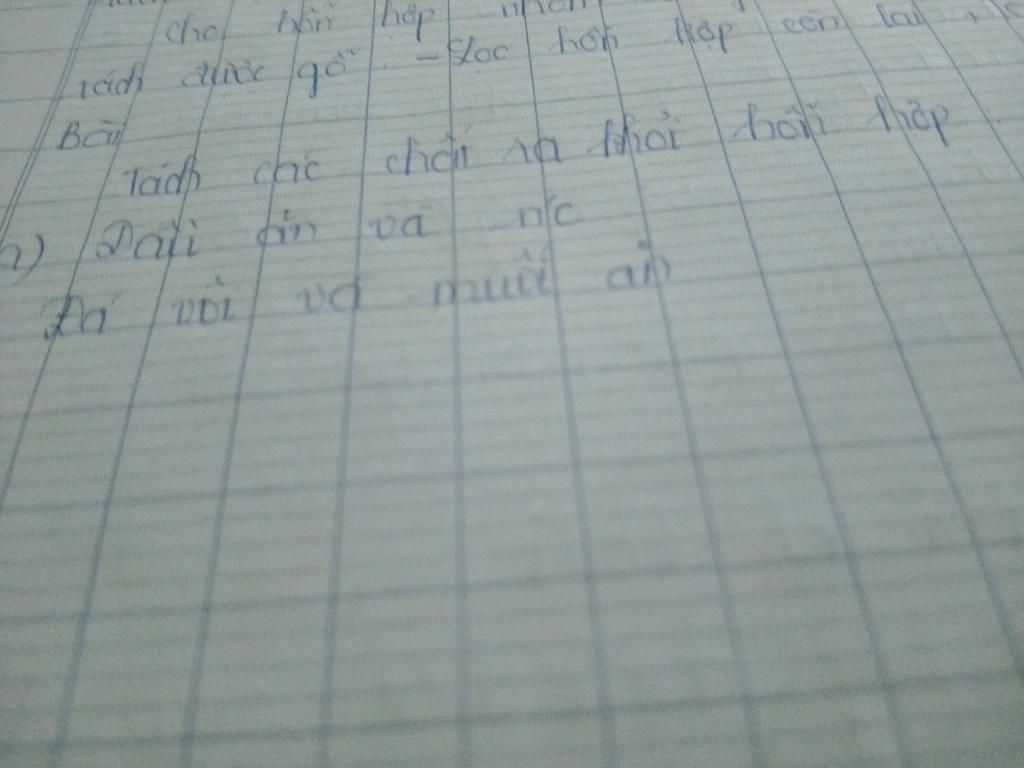 cho hỗn hợp
tách được gỗ. - Lọc hỗn hợp còn lại,
Bài
Tách các chất ra khỏi hỗn hợp
a) Dầu ăn và nc
Đá vôi và muối ăn